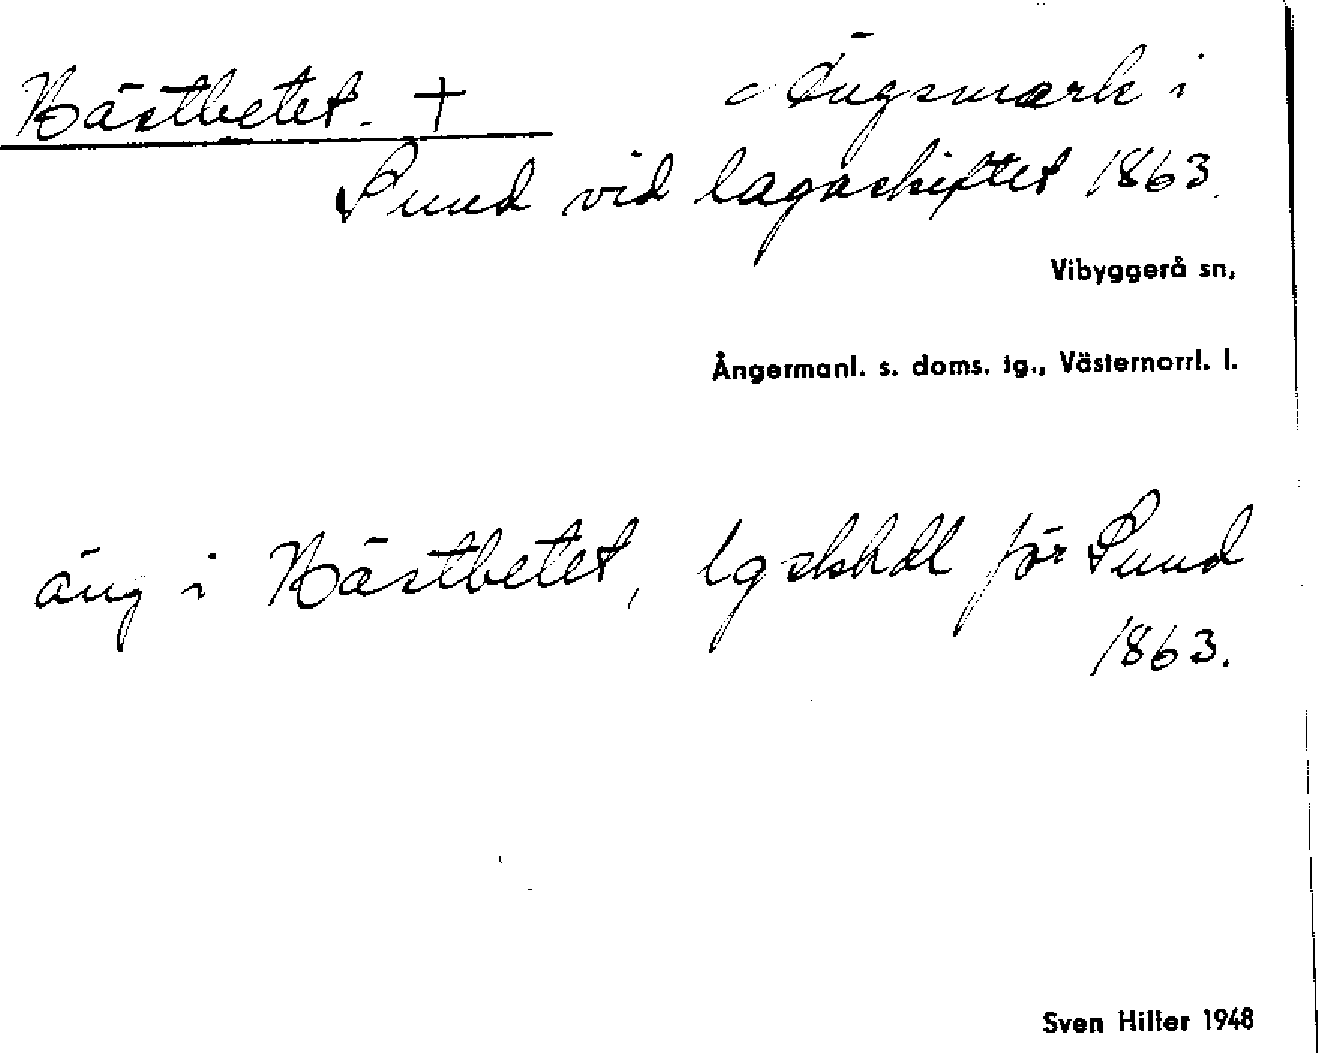 Hästbetet. + Ängsmark i
Sund vid lagaskiftet 1863.
Vibyggerå sn,
Ångermanl. s. doms. tg., Västernorrl. l.
äng i Hästbetet, lgskhdl för Sund
1863.
Sven Hiller 1948